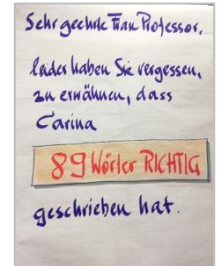 Sehr geehrte Frau Professor,
leider haben Sie vergessen,
zu erwähnen, dass
Carina
89 Wörter RICHTIG
geschrieben hat.